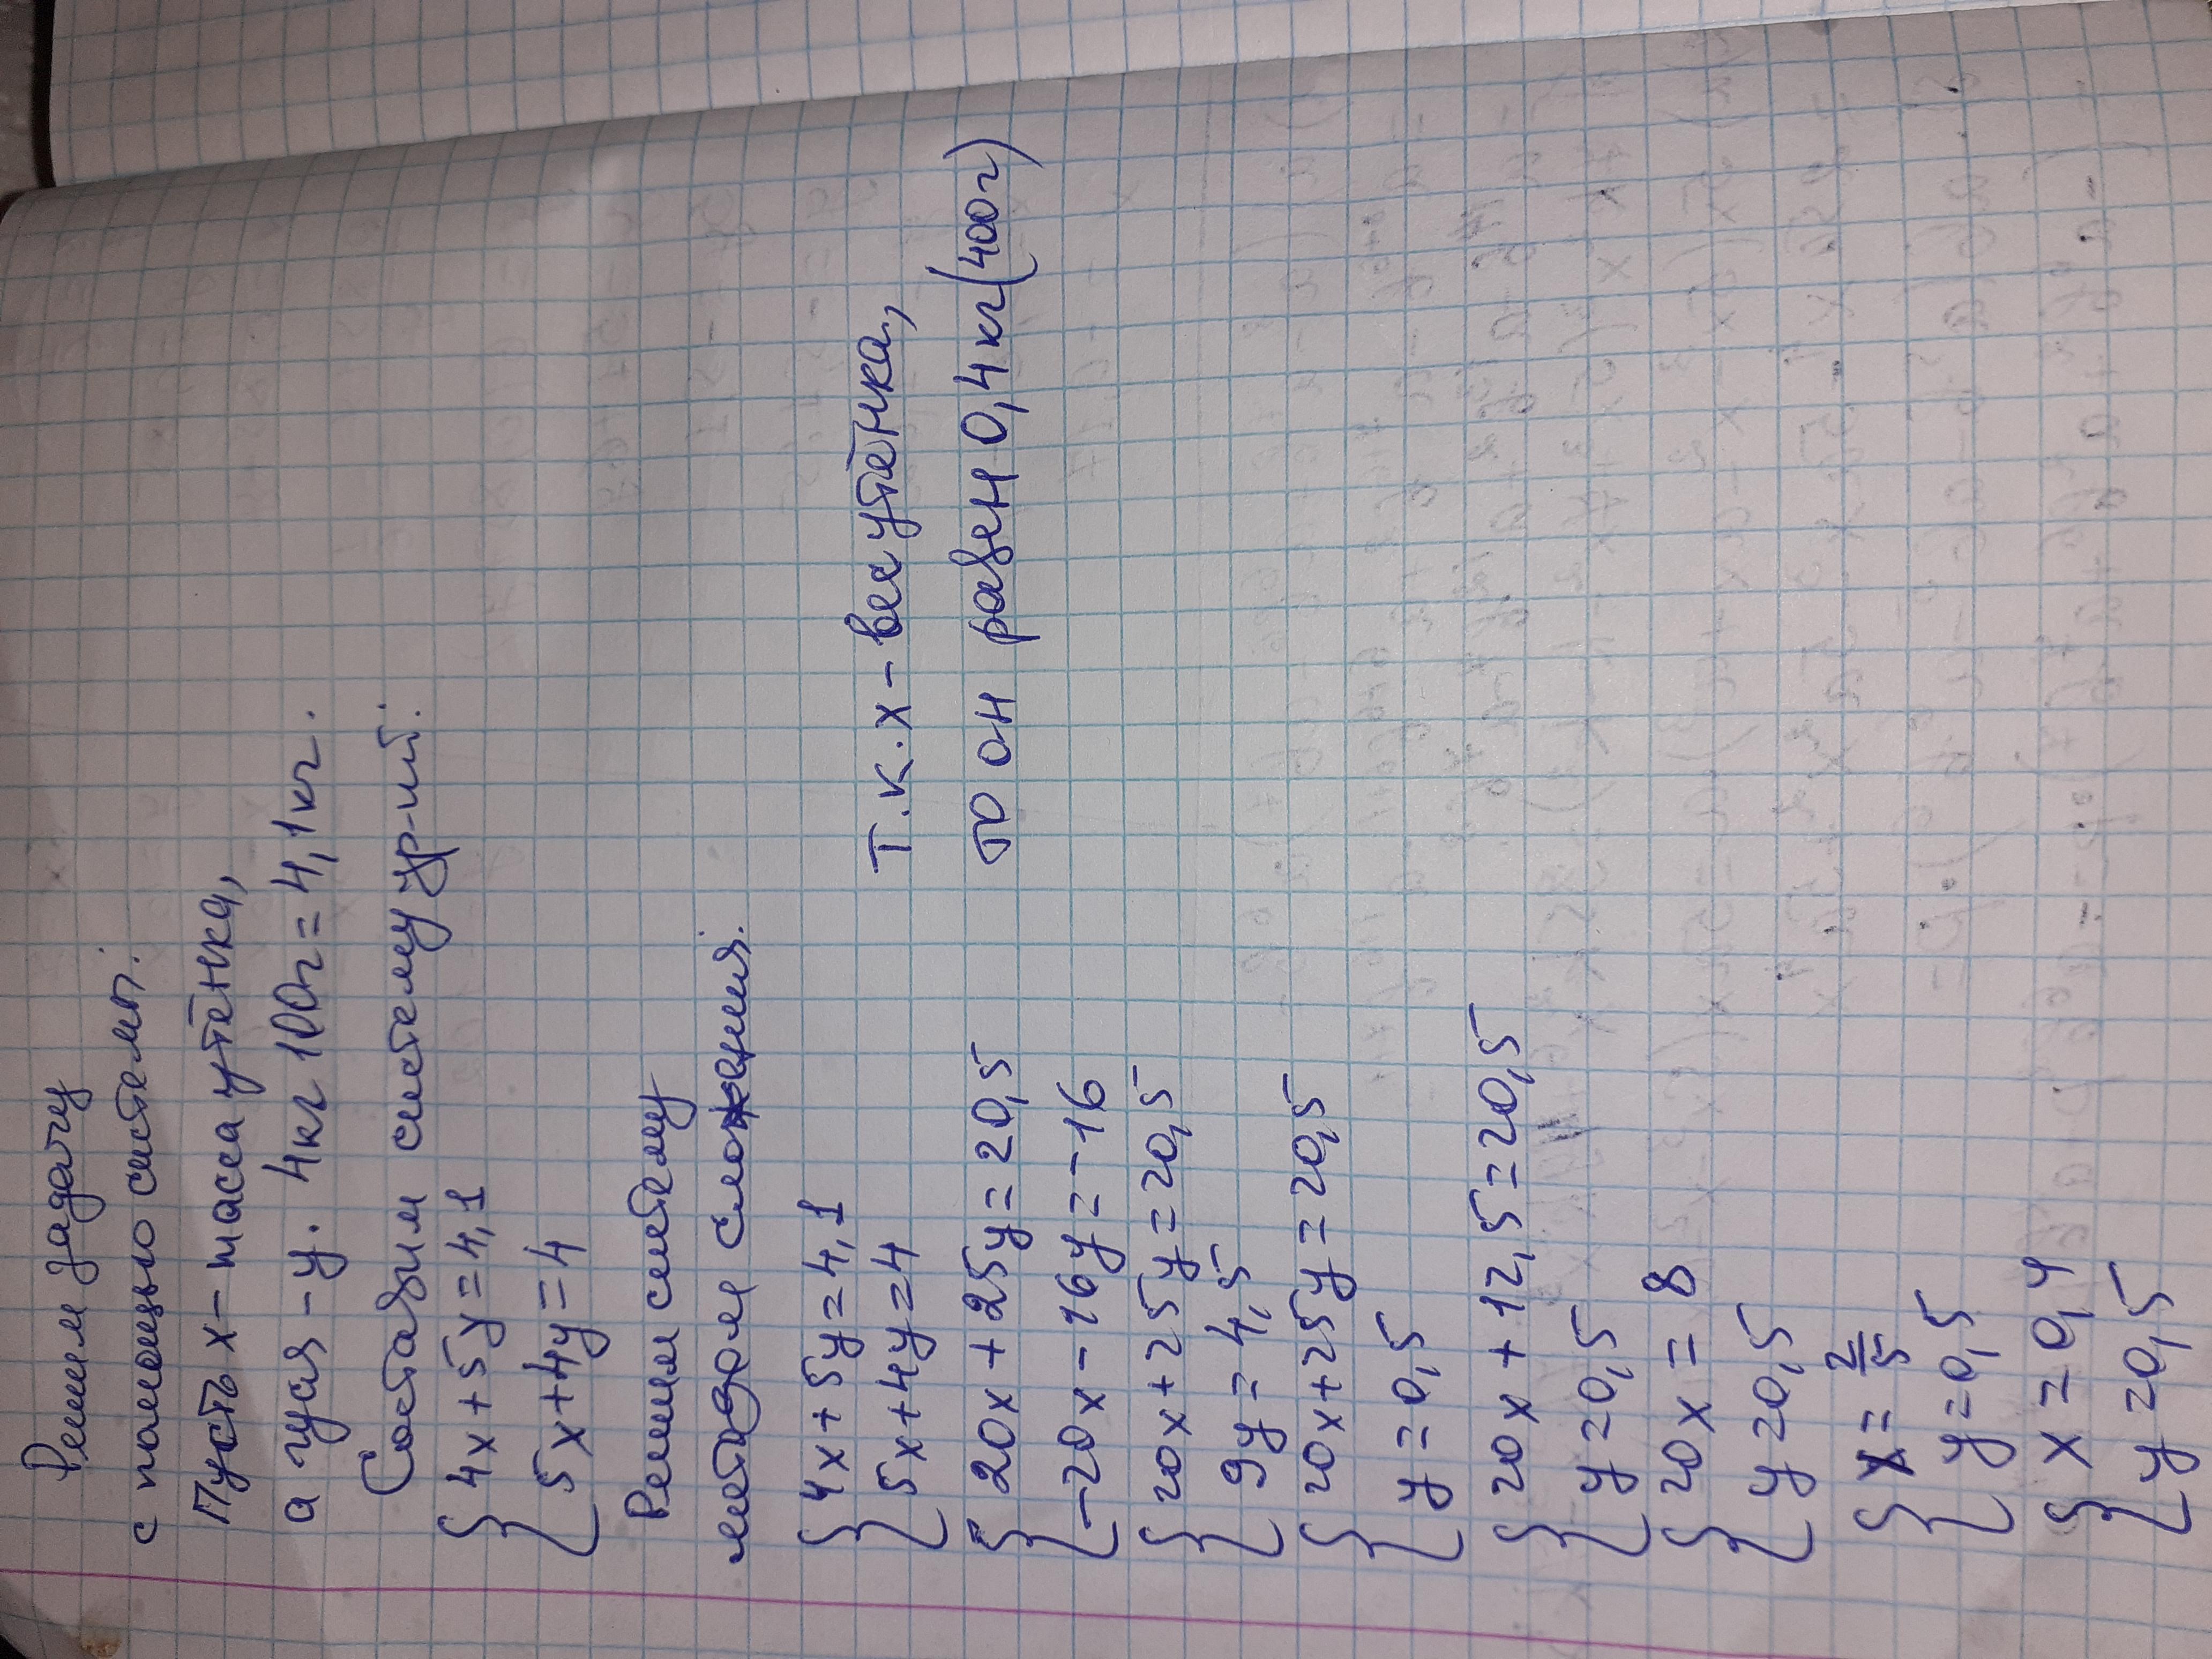 Решим задачу
с помощью системы.
Пусть x - масса утёнка,
а гуся - y. 4кг 100г = 4,1кг.
Составим систему ур-ий:
{4x+5y=4,1
5x+4y=4
Решим систему
методом сложения:
{4x+5y=4,1
5x+4y=4
{20x+25y=20,5
-20x-16y=-16
{20x+25y=20,5
9y=4,5
{20x+25y=20,5
y=0,5
{20x+12,5=20,5
y=0,5
{20x=8
y=0,5
{x=2/5
y=0,5
{x=0,4
y=0,5
Т.к. x - вес утёнка,
то он равен 0,4кг(400г)